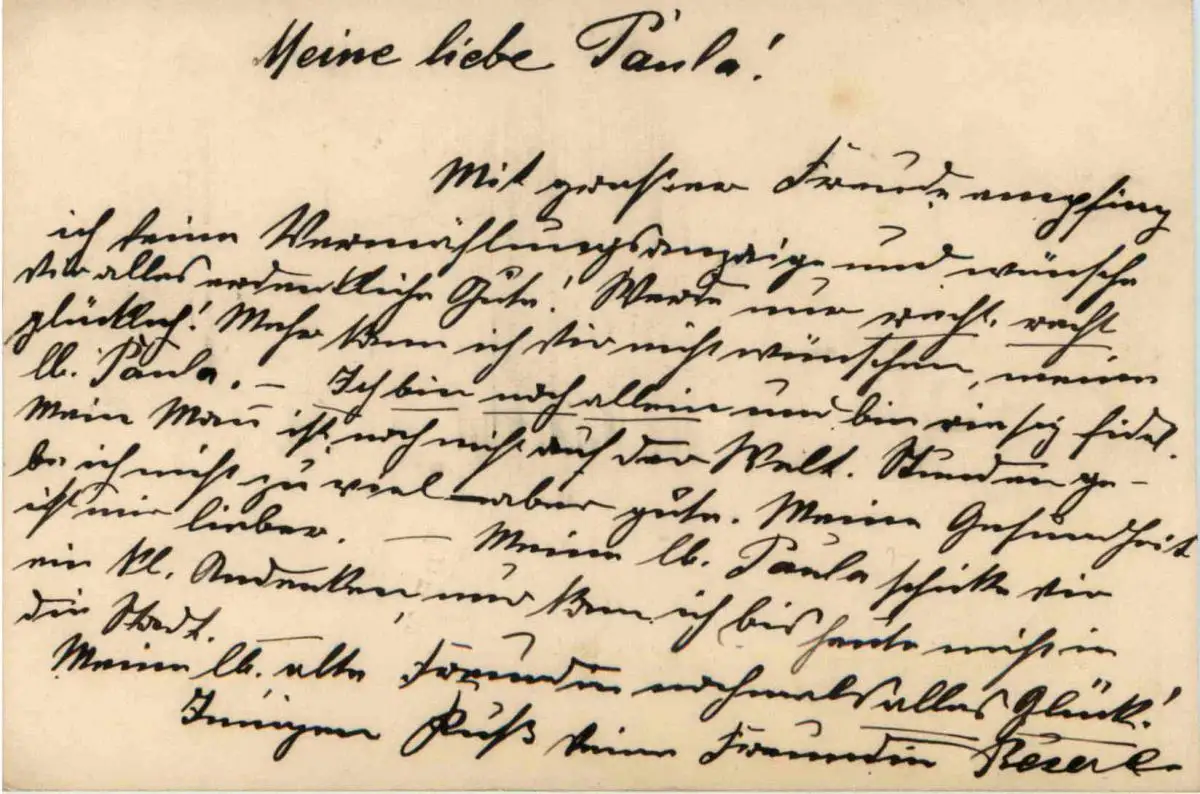 Meine liebe Paula!
Mit großer Freude empfing
ich deine Vermählungsanzeige und wünsche
dir alles erdenkliche Gute! Werde nur recht, recht
glücklich! Mehr kann ich dir nicht wünschen, meine
lb. Paula. – Ich bin noch allein und bin riesig fidel.
Mein Mann ist noch nicht auf der Welt. Stunden ge-
be ich nicht zu viel – aber gute. Meine Gesundheit
ist mir lieber. – Meine lb. Paula schicke dir
ein kl. Andenken nur kam ich bis heute nicht in
die Stadt. –
Meine lb. alte Freundin nochmals alles Glück!
Innigen Kuß deine Freundin Reserl